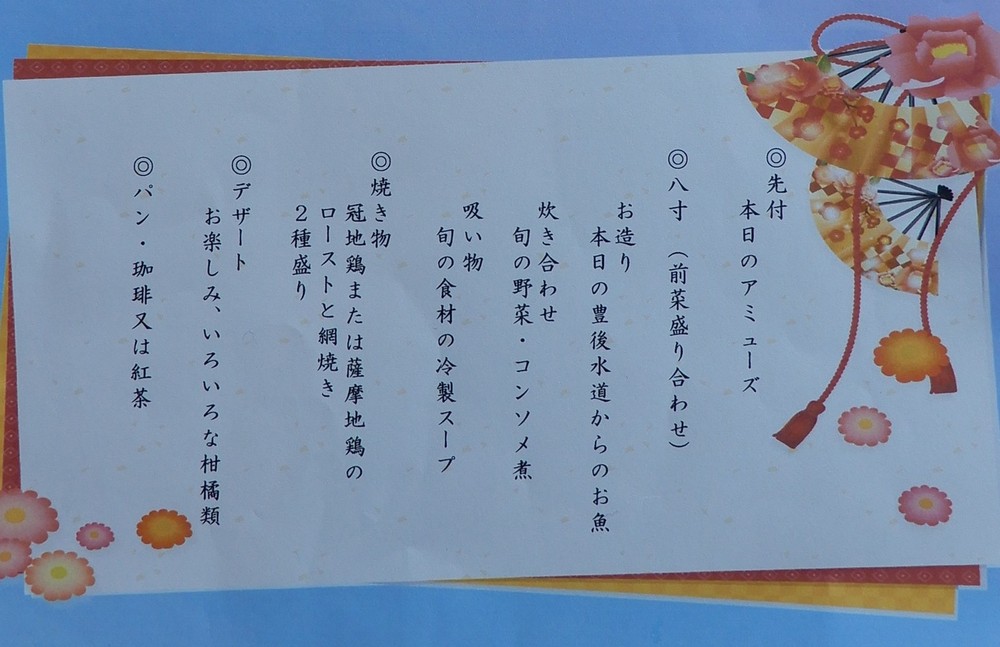 ◎先付
本日のアミューズ
◎八寸 (前菜盛り合わせ)
お造り
本日の豊後水道からのお魚
炊き合わせ
旬の野菜・コンソメ煮
吸い物
旬の食材の冷製スープ
◎焼き物
冠地鶏または薩摩地鶏の
ローストと網焼き
2種盛り
◎デザート
お楽しみ、いろいろな柑橘類
◎パン・珈琲又は紅茶